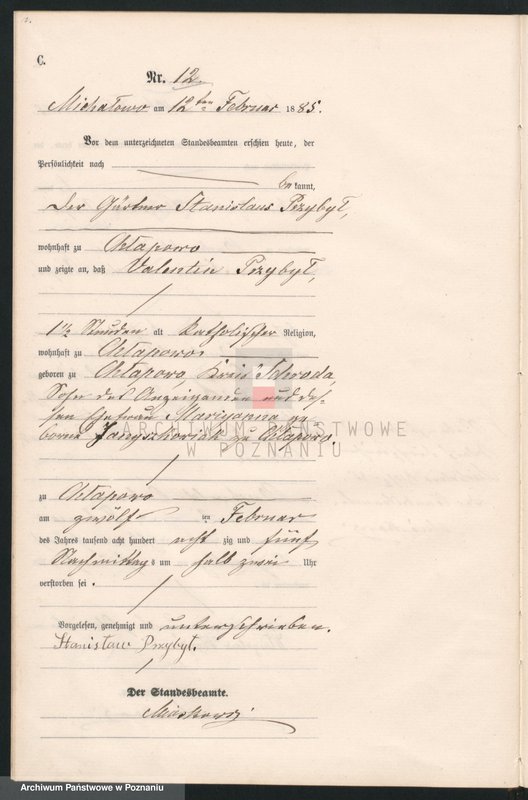 C.
Nr. 12.
Michałowo am 12ten Februar 1885.
Vor dem unterzeichneten Standesbeamten erschien heute, der
Persönlichkeit nach
be kannt,
der Gärtner Stanislaus Przybył,
wohnhaft zu Chłapowo
und zeigte an, daß Valentin Przybył,
1 1/2 Stunden alt katholischer Religion,
wohnhaft zu Chłapowo
geboren zu Chłapowo, Kreis Schroda,
Sohn des Anzeigenden und des-
sen Ehefrau Mariyanna ge-
borne Janyszkoviak zu Chłapowo.
zu Chłapowo
am zwölf ten Februar
des Jahres tausend acht hundert acht zig und fünf
Nachmittags um halb zwei Uhr
verstorben sei.
Vorgelesen, genehmigt und unterschrieben.
Stanisław Przybył.
Der Standesbeamte.
ARCHIWUM PAŃSTWOWE
W POZNANIU
Archiwum Państwowe w Poznaniu